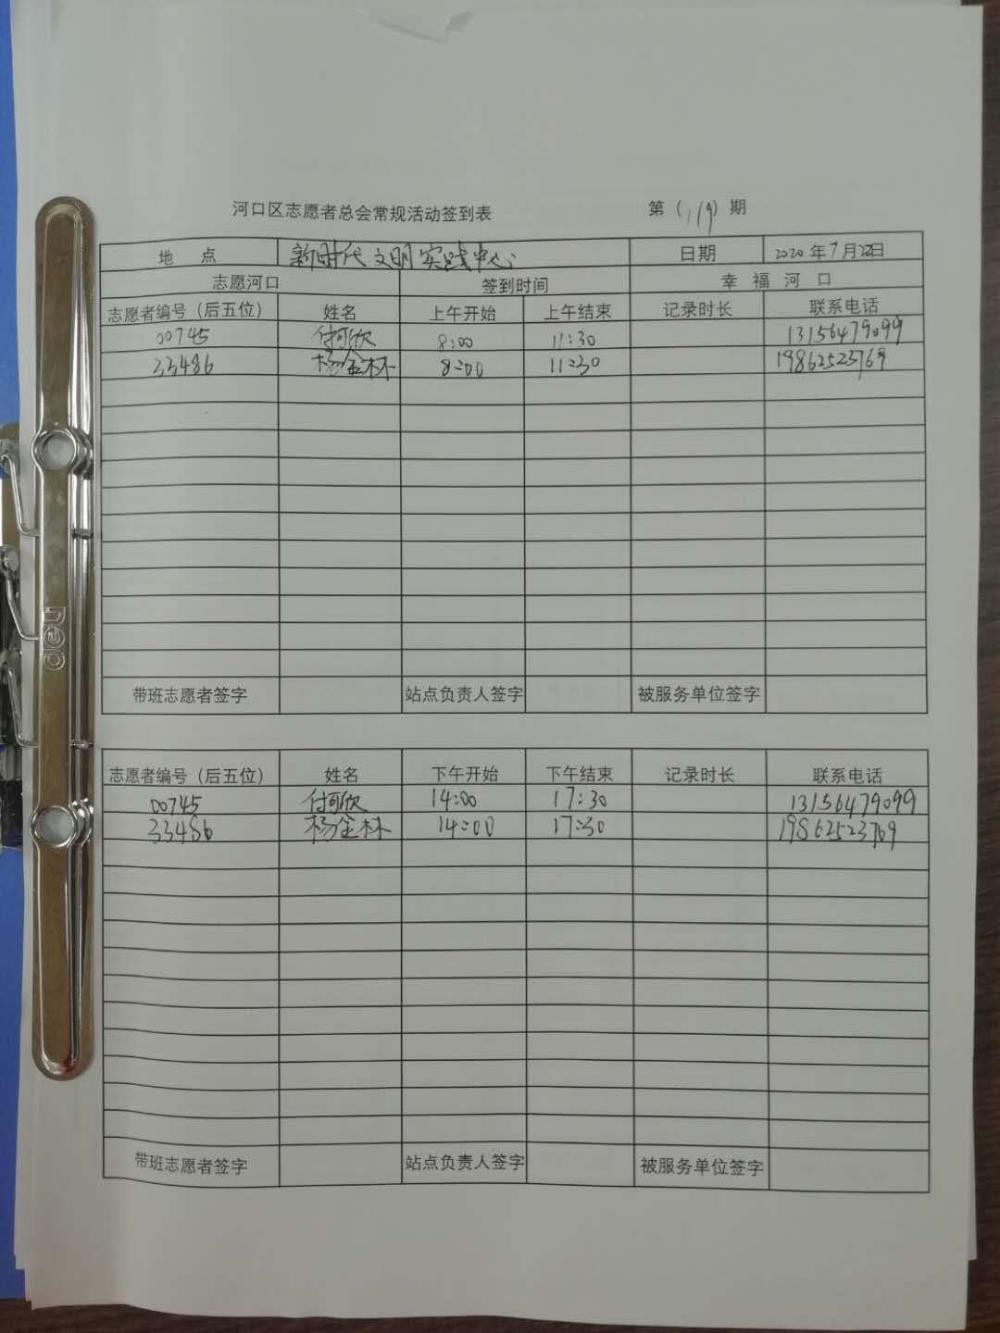 河口区志愿者总会常规活动签到表 第（119）期
地 点 新时代文明实践中心 日期 2020年7月22日
志愿河口 签到时间 幸 福 河 口
志愿者编号（后五位） 姓名 上午开始 上午结束 记录时长 联系电话
00745 付可欣 8:00 11:30 13156479099
33486 杨金林 8:00 11:30 19862523769
带班志愿者签字 站点负责人签字 被服务单位签字
志愿者编号（后五位） 姓名 下午开始 下午结束 记录时长 联系电话
00745 付可欣 14:00 17:30 13156479099
33486 杨金林 14:00 17:30 19862523769
带班志愿者签字 站点负责人签字 被服务单位签字